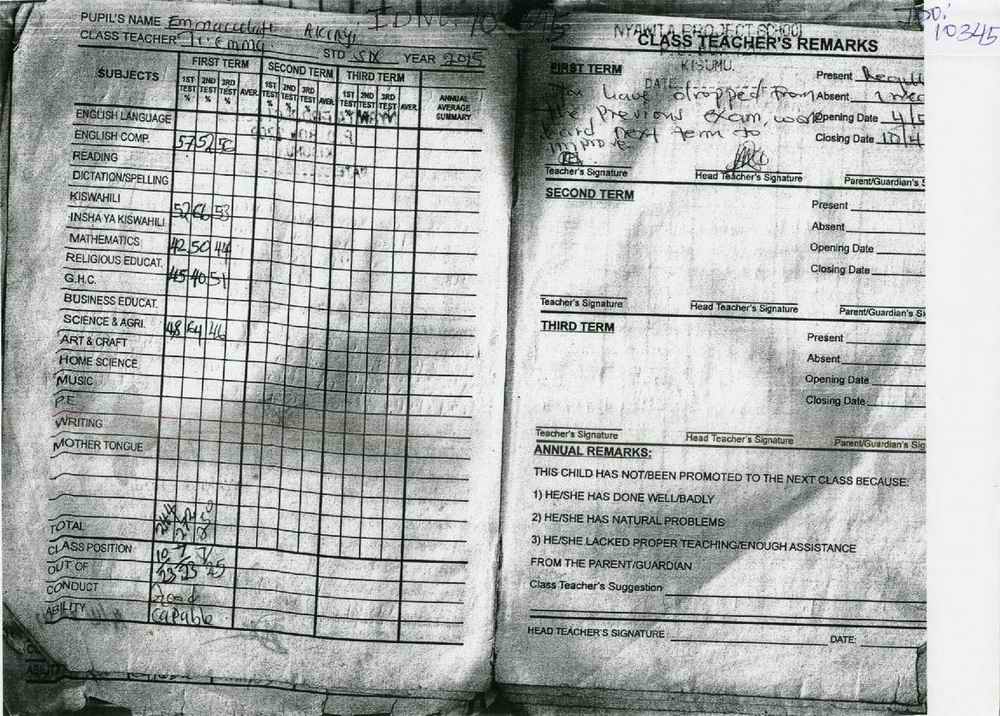 PUPIL'S NAME Emmaculate Akinyi
CLASS TEACHER Tr. Emma STD SIX YEAR 2015
SUBJECTS FIRST TERM SECOND TERM THIRD TERM ANNUAL AVERAGE SUMMARY
1ST TEST % 2ND TEST % 3RD TEST % AVER. 1ST TEST % 2ND TEST % 3RD TEST % AVER. 1ST TEST 2ND TEST 3RD TEST AVER.
ENGLISH LANGUAGE
ENGLISH COMP. 57 52 50
READING
DICTATION/SPELLING
KISWAHILI
INSHA YA KISWAHILI 52 66 53
MATHEMATICS 42 50 44
RELIGIOUS EDUCAT.
G.H.C. 45 40 51
BUSINESS EDUCAT.
SCIENCE & AGRI. 48 64 46
ART & CRAFT
HOME SCIENCE
MUSIC
P.E
WRITING
MOTHER TONGUE
TOTAL 244
CLASS POSITION 10 7
OUT OF 23 23 25
CONDUCT Good
ABILITY Capable
ID NO:
10345
NYAWITA PROJECT SCHOOL
CLASS TEACHER'S REMARKS
KISUMU.
DATE
FIRST TERM Present
You have dropped from Absent
the previous exam, work Opening Date
hard next term to Closing Date
improve.
Teacher's Signature Head Teacher's Signature Parent/Guardian's
SECOND TERM
Present
Absent
Opening Date
Closing Date
Teacher's Signature Head Teacher's Signature Parent/Guardian's Si
THIRD TERM
Present
Absent
Opening Date
Closing Date
Teacher's Signature Head Teacher's Signature Parent/Guardian's Sig
ANNUAL REMARKS:
THIS CHILD HAS NOT/BEEN PROMOTED TO THE NEXT CLASS BECAUSE:
1) HE/SHE HAS DONE WELL/BADLY
2) HE/SHE HAS NATURAL PROBLEMS
3) HE/SHE LACKED PROPER TEACHING/ENOUGH ASSISTANCE
FROM THE PARENT/GUARDIAN
Class Teacher's Suggestion
HEAD TEACHER'S SIGNATURE DATE: